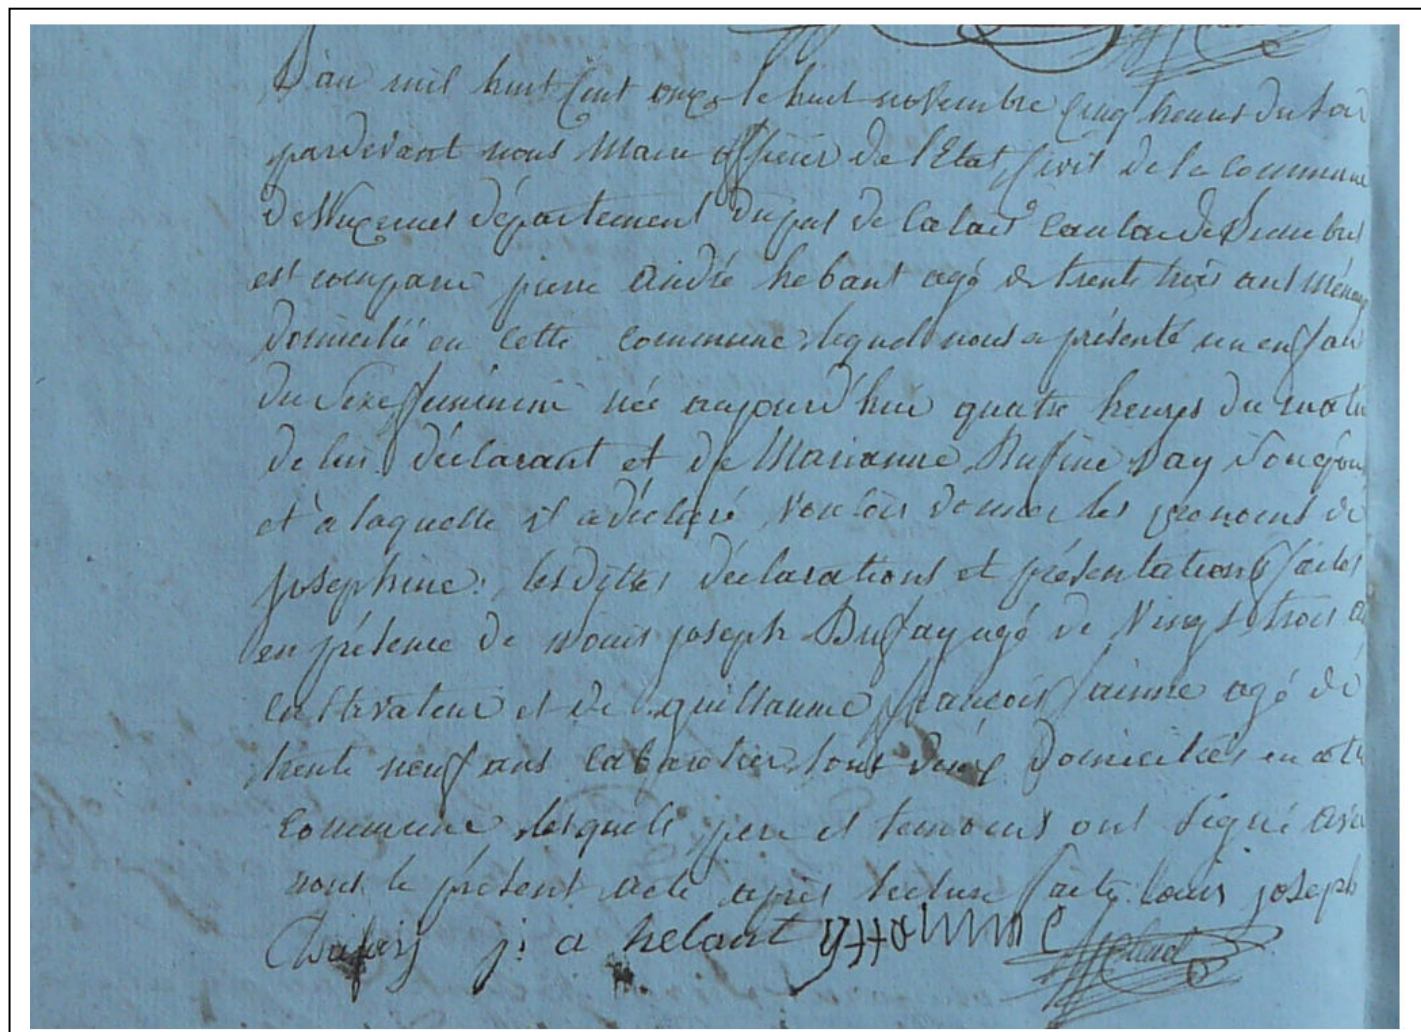 L'an mil huit cent onze le huit novembre cinq heures du soir
pardevant nous Maire officier de l'Etat Civil de la commune
de département du pas de Calais Canton de
est comparu pierre andré hebant agé de trente trois ans ménag
domicilié en cette commune lequel nous a présenté un enfan
du Sexe feminin née aujourd'hui quatre heures du matin
de lui déclarant et de Marianne Rufine son épou
et a laquelle il a déclaré vouloir donner les prenoms de
josephine. lesdittes déclarations et présentations faites
en présence de Louis joseph Dufay agé de vingt trois a
cultivateur et de guillaume françois agé de
trente neuf ans cabaretier tous deux domiciliés en cette
commune lesquels pere et temoins ont signé avec
nous le présent acte après lecture faite. Louis joseph
j: a hebant